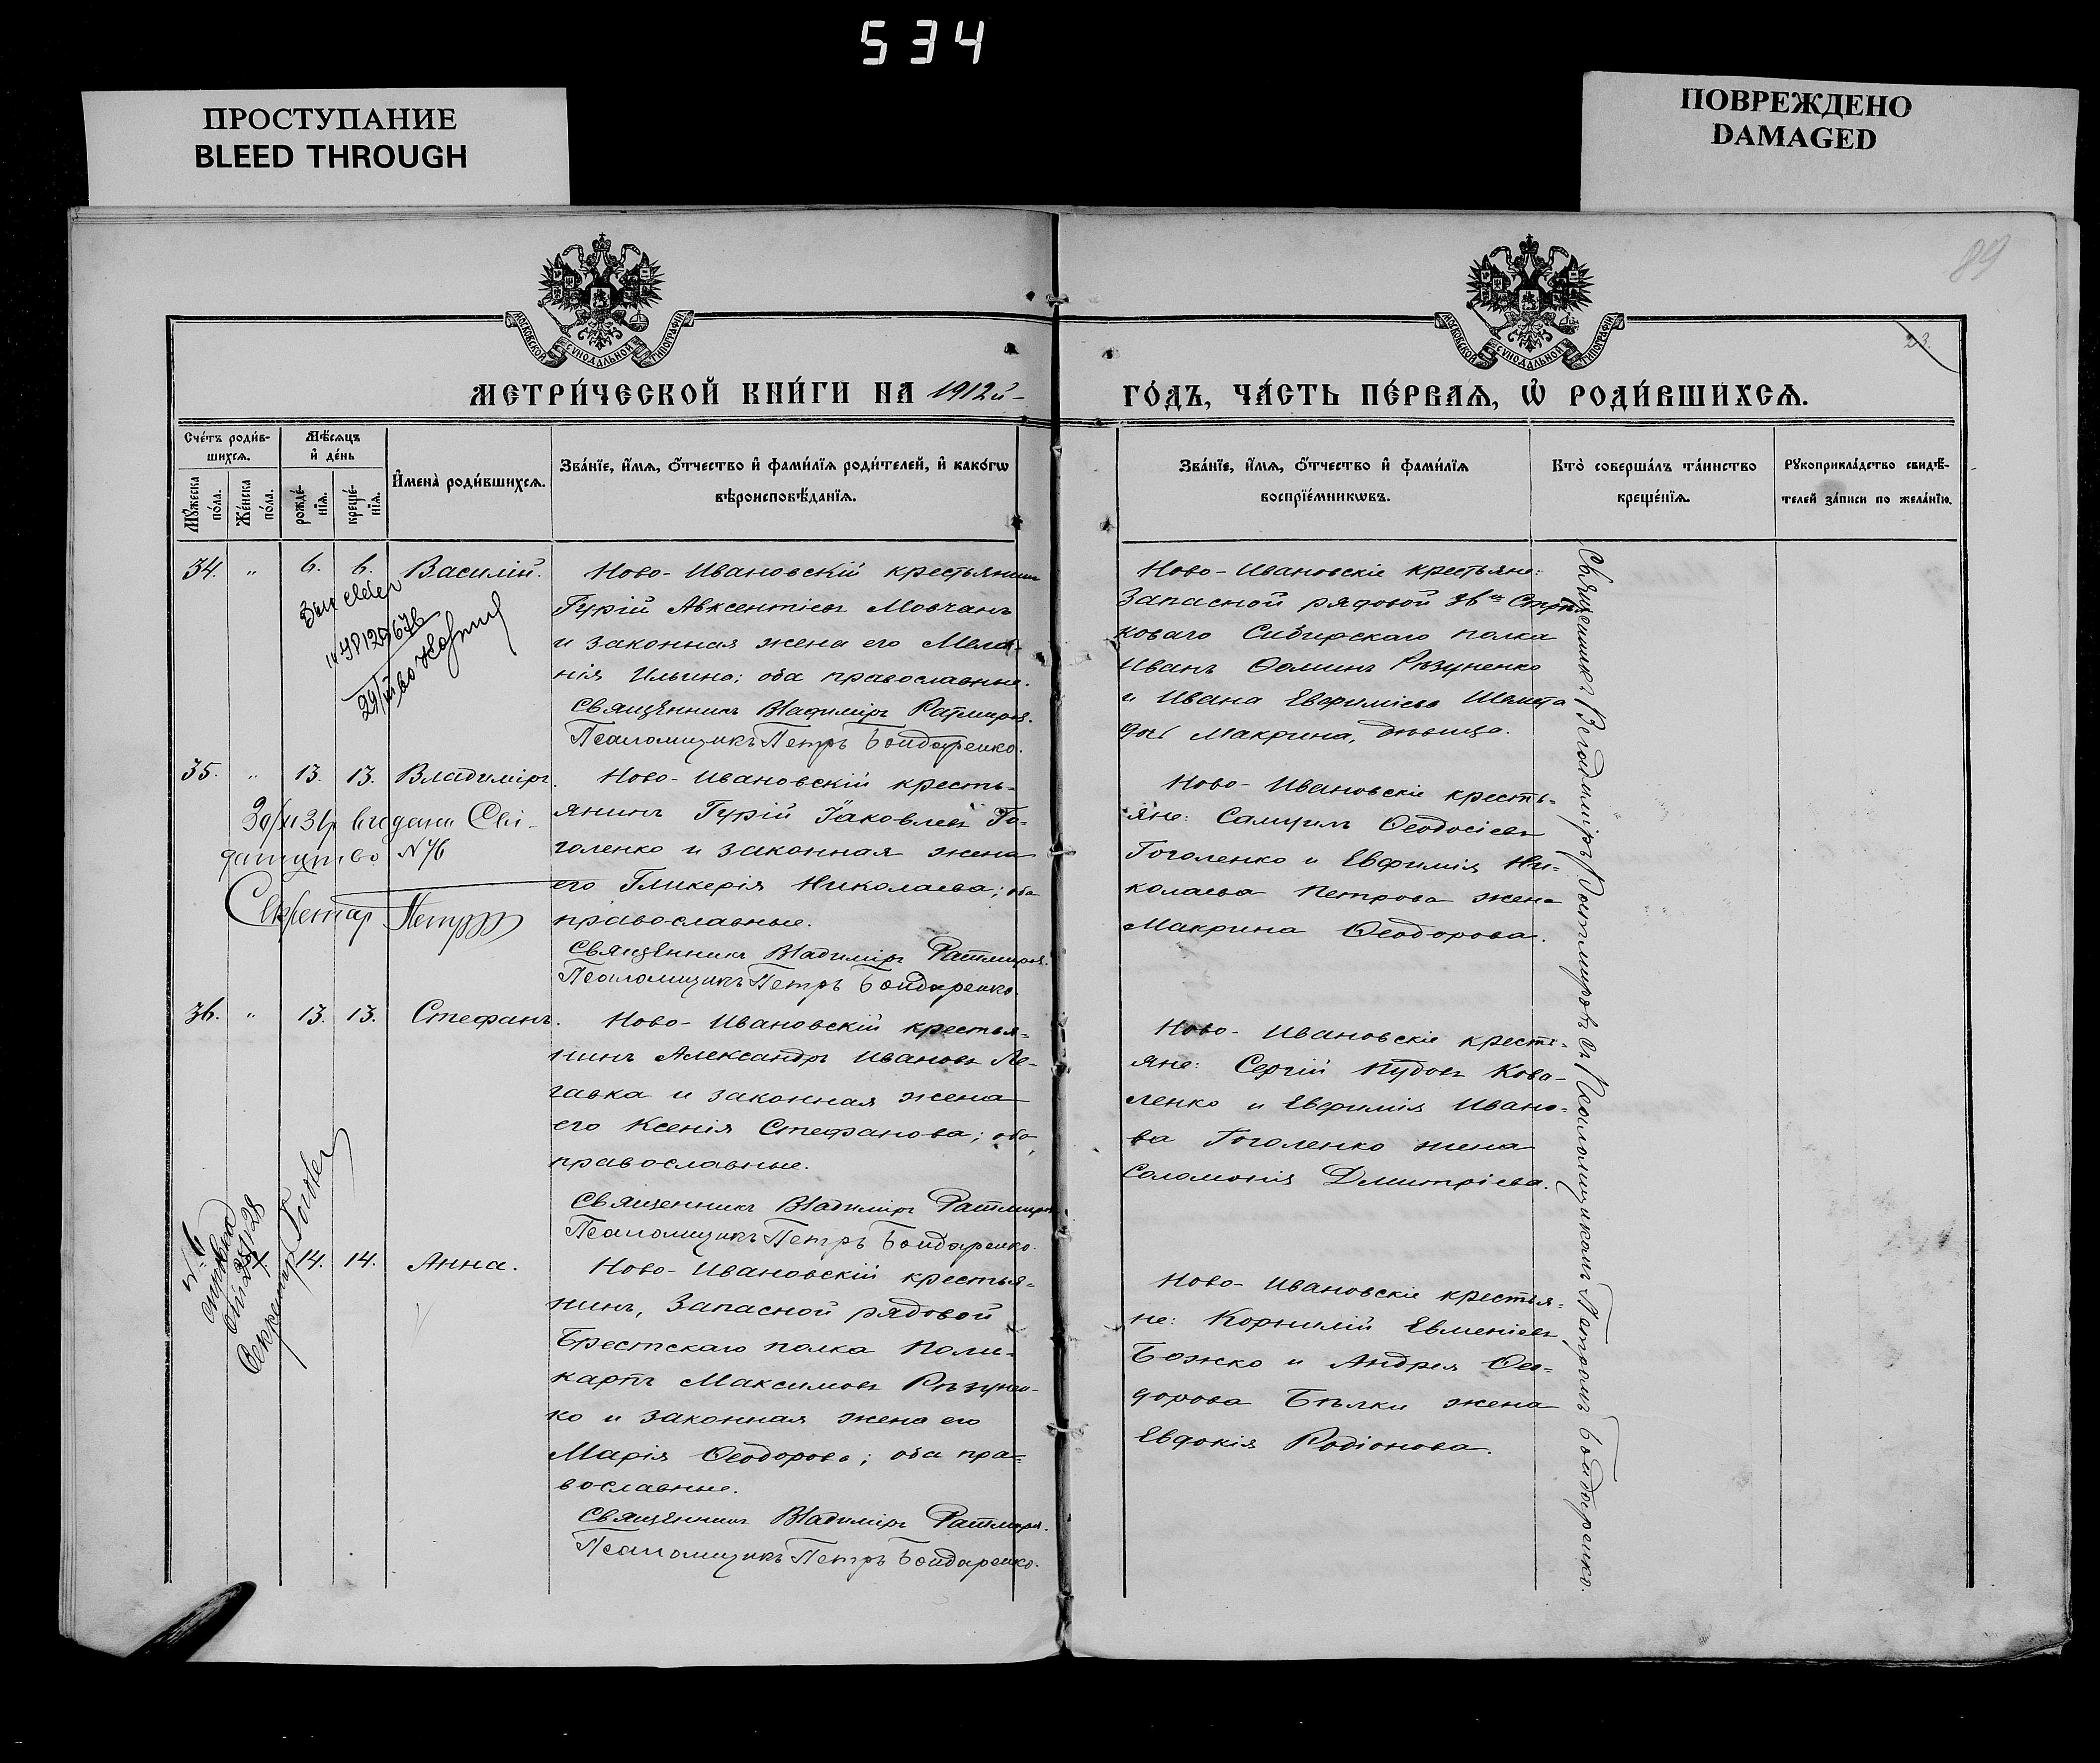 534
ПРОСТУПАНИЕ
BLEED THROUGH
ПОВРЕЖДЕНО
DAMAGED
89
23.
МОСКОВСКОЙ СѴНОДАЛЬНОЙ ТИПОГРАФІИ
МОСКОВСКОЙ СѴНОДАЛЬНОЙ ТИПОГРАФІИ
МЕТРИ́ЧЕСКОЙ КНИ́ГИ НА 1912й
ГО́ДЪ, ЧА́СТЬ ПЕ́РВАѦ, Ѽ РОДИ́ВШИХСѦ.
Сче́тъ роди́в-
шихсѧ.
Мѹ́жеска по́ла.
Же́нска по́ла.
Мѣ́сѧцъ
и҆ де́нь
рожде́-
нїѧ.
креще́-
нїѧ.
И҆мена̀ роди́вшихсѧ.
Зва́нїе, и҆́мѧ, ѻ҆́тчество и҆ фами́лїѧ роди́телей, и҆ како́гѡ
вѣроисповѣ́данїѧ.
Зва́нїе, и҆́мѧ, ѻ҆́тчество и҆ фами́лїѧ
воспрїе́мникѡвъ.
Кто̀ соверша́лъ та́инство
креще́нїѧ.
Рѹкоприкла́дство свидѣ́-
телей за́писи по жела́нїю.
34. " 6. 6. Василій.
Ново-Ивановскій крестьянинъ
Гурій Авксентіевъ Мовчанъ
и законная жена его Мела-
нія Ильина; оба православные.
Священникъ Владиміръ Ратмировъ.
Псаломщикъ Петръ Бондаренко.
Ново-Ивановскіе крестьяне:
Запасной рядовой 36го Стрѣл
коваго Сибирскаго полка
Иванъ Ѳоминъ Рѣзуненко
и Ивана Евфиміева
дочь Макрина, дѣвица.
35. " 13. 13. Владиміръ.
видано Сві-
доцтво №46
Секретар
Ново-Ивановскій кресть-
янинъ Гурій Іаковлевъ Го-
голенко и законная жена
его Гликерія Николаева; оба
православные.
Священникъ Владиміръ Ратмировъ.
Псаломщикъ Петръ Бондаренко.
Ново-Ивановскіе кресть-
яне: Самуилъ Ѳеодосіевъ
Гоголенко и Евфимія Ни-
колаева Петрова жена
Макрина Ѳеодорова.
36. " 13. 13. Стефанъ.
Ново-Ивановскій крестья-
нинъ Александръ Ивановъ Ле-
гавка и законная жена
его Ксенія Стефанова; оба
православные.
Священникъ Владиміръ Ратмировъ
Псаломщикъ Петръ Бондаренко.
Ново-Ивановскіе кресть-
яне: Сергій Нудовъ Кова-
ленко и Евфимія Ивано-
ва Гоголенко жена
Соломонія Димитріева.
14. 14. Анна.
Секретар
Ново-Ивановскій крестья-
нинъ, Запасной рядовой
Брестскаго полка Поли-
карпъ Максимовъ Рѣзунен-
ко и законная жена его
Марія Ѳеодорова; оба пра-
вославные.
Священникъ Владиміръ Ратмировъ.
Псаломщикъ Петръ Бондаренко.
Ново-Ивановскіе крестья-
не: Корнилій Евменіевъ
Божко и Андрея Ѳео-
дорова Бѣлки жена
Евдокія Родіонова.
Священникъ Владиміръ Ратмировъ съ Псаломщикомъ Петромъ Бондаренко.